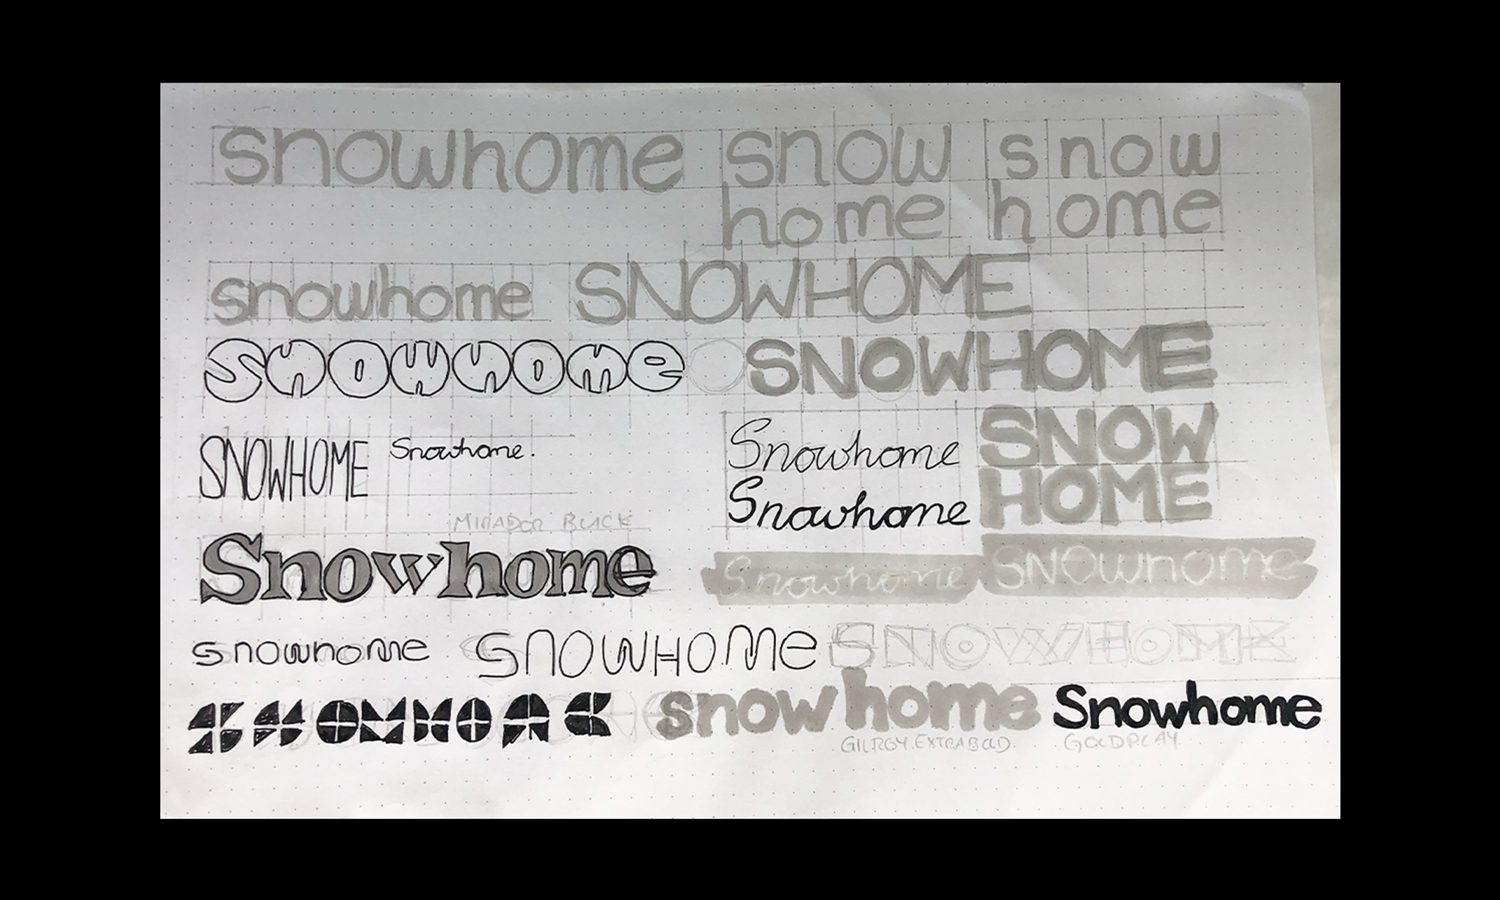 snowhome snow snow
home home
snowhome SNOWHOME
snowhome SNOWHOME
SNOWHOME Snowhome. Snowhome SNOW
Snowhome HOME
MIRADOR BLACK
Snowhome Snowhome SNOWhOme
snowhome SNOWHOMe SNOWHOME
SNOWHOME snowhome Snowhome
GILROY.EXTRABOLD. GOLDPLAY